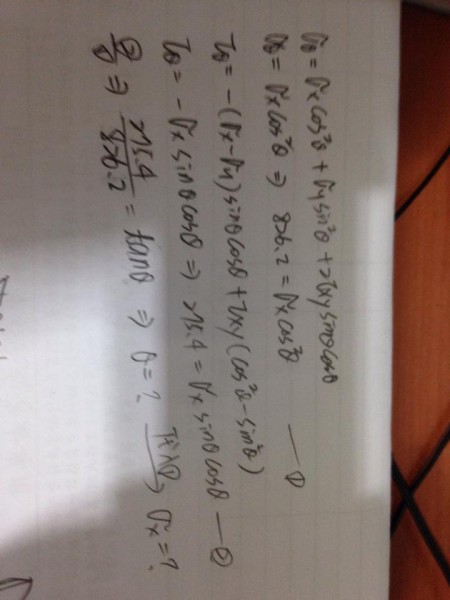 σθ = σx cos²θ + σy sin²θ + 2τxy sinθcosθ
σθ = σx cos²θ ⇒ 826.2 = σx cos²θ —①
τθ = -(σx-σy)sinθcosθ + τxy(cos²θ-sin²θ)
τθ = -σx sinθcosθ ⇒ 215.4 = σx sinθcosθ —②
②/① ⇒ 215.4/826.2 = tanθ ⇒ θ=? ⇒ σx=?